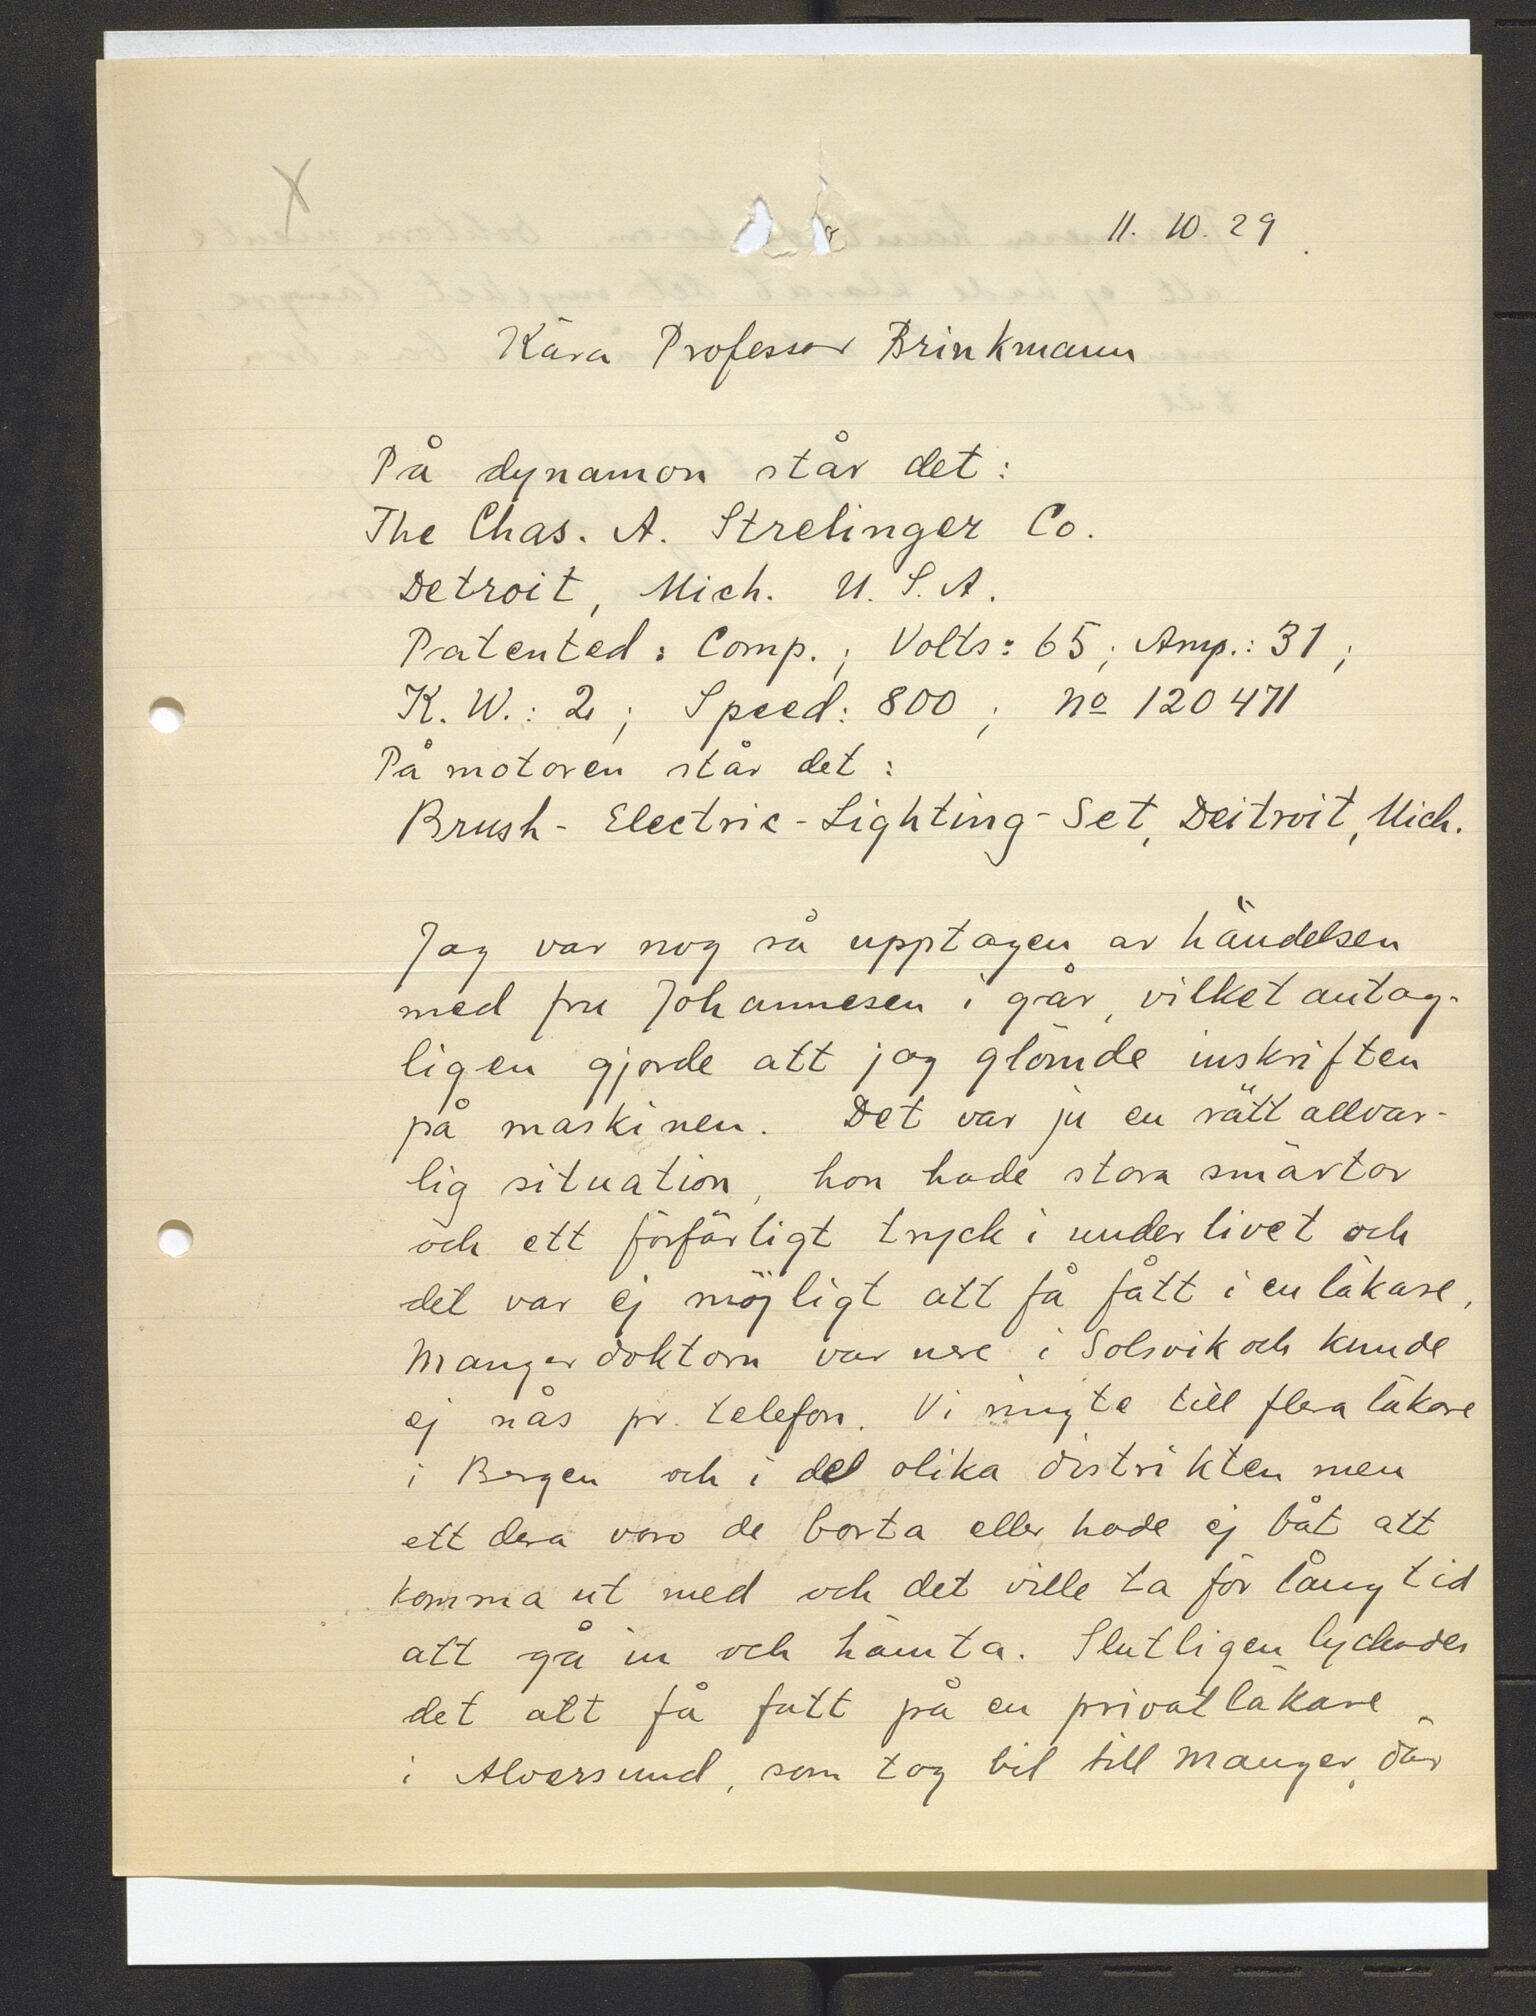 11. 10. 29
Kära Professor Brinkmann
På dynamon står det:
The Chas. A. Strelinger Co.
Detroit, Mich. U. S. A.
Patented: Comp.; Volts: 65; Amp.: 31;
K. W.: 2; Speed: 800; No 120471
På motoren står det:
Brush-Electric-Lighting-Set, Deitroit, Mich.
Jag var nog så upptagen av händelsen
med fru Johannesen i går, vilket antag-
ligen gjorde att jag glömde inskriften
på maskinen. Det var ju en rätt allvar-
lig situation, hon hade stora smärtor
och ett förfärligt tryck i underlivet och
det var ej möjligt att få fått i en läkare,
Mangerdoktorn var nere i Solsvik och kunde
ej nås pr. telefon. Vi ringte till flera läkare
i Bergen och i del olika distrikten men
ett dera voro de borta eller hade ej båt att
komma ut med och det ville ta för lång tid
att gå in och hämta. Slutligen lyckades
det att få fatt på en privatläkare
i Alversund, som tog bil till Manger, där